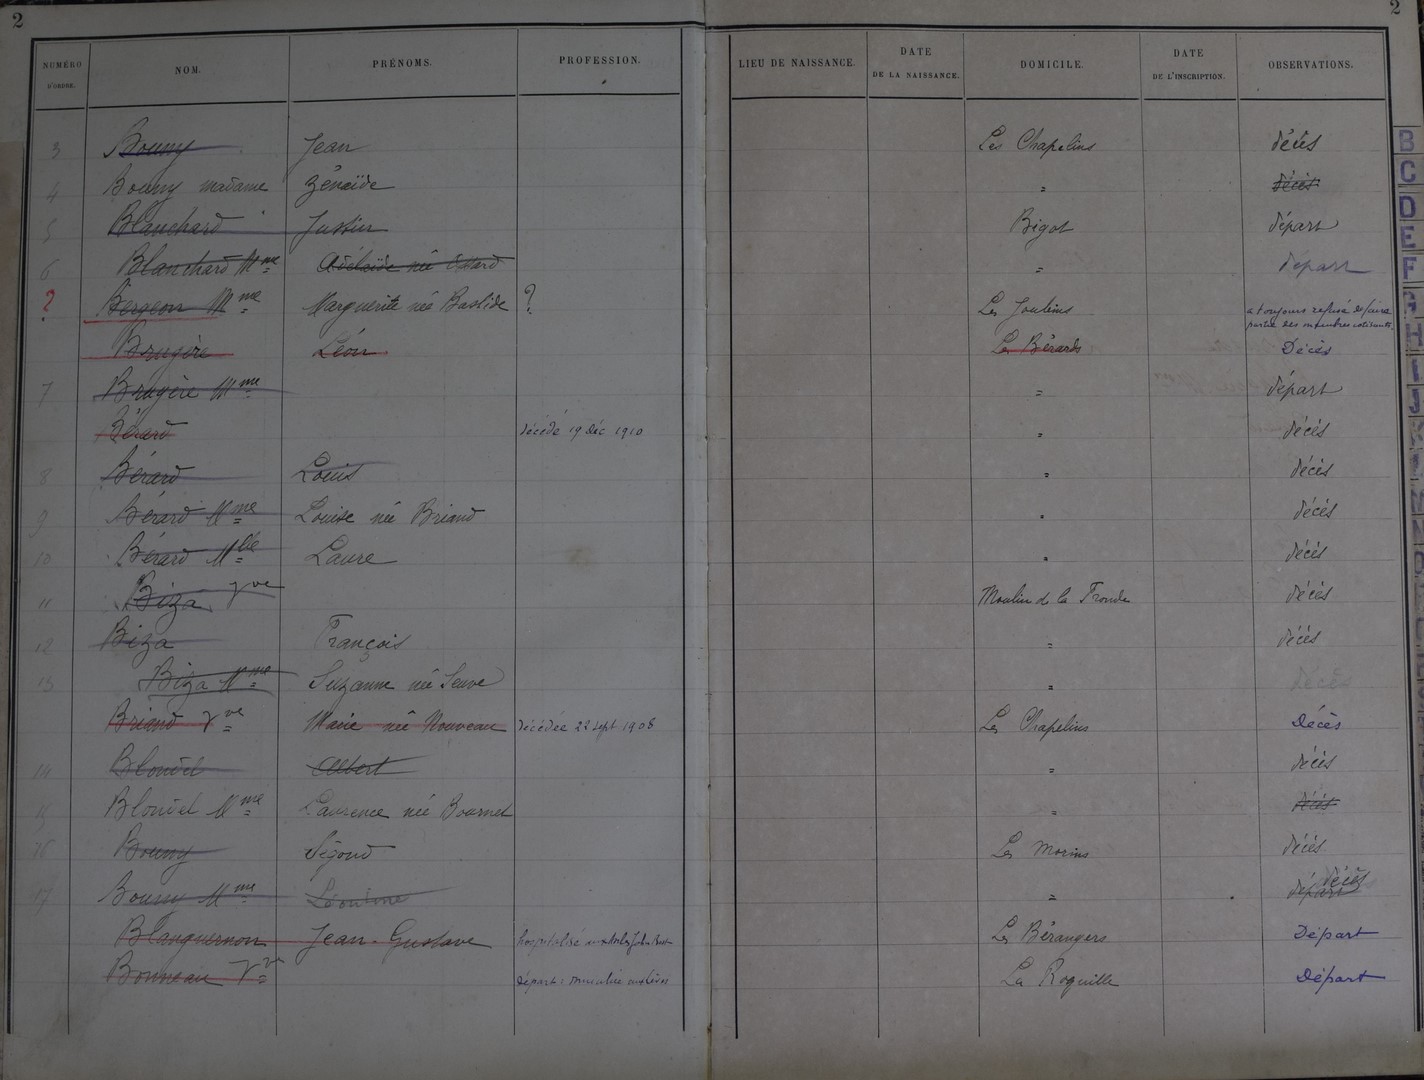 2 2
NUMÉRO D'ORDRE. NOM. PRÉNOMS. PROFESSION. LIEU DE NAISSANCE. DATE DE LA NAISSANCE. DOMICILE. DATE DE L'INSCRIPTION. OBSERVATIONS.
3 Bouny Jean Les Chapelins décès
4 Bouny madame Zénaïde " décès
5 Blanchard Justin Bigot départ
6 Blanchard Mme Adélaïde née " départ
? Bergeon Mme Marguerite née Bastide ? Les Joulins a toujours refusé de faire
partie des membres cotisants
Brugère Léon Les Bérards Décès
7 Brugère Mme " départ
Bérard décédé 19 Déc 1910 " décès
8 Bérard Louis " décès
9 Bérard Mme Louise née Briand " décès
10 Bérard Mlle Laure " décès
11 Biza Vve Moulin de la Fronde décès
12 Biza François " décès
13 Biza Mme Suzanne née Seuve " Décès
Briand Vve Marie née Nouveau décédée 22 sept 1908 Les Chapelins Décès
14 Blondel Albert " décès
15 Blondel Mme Laurence née Bournel " décès
16 Bouny Ségond Les Morins décès
17 Bouny Mme Léontine " départ décès
Blanguernon Jean-Gustave hospitalisé Les Bérangers Départ
Bonneau Vve départ: La Roquille Départ
B
C
D
E
F
G
H
I
J
K
L